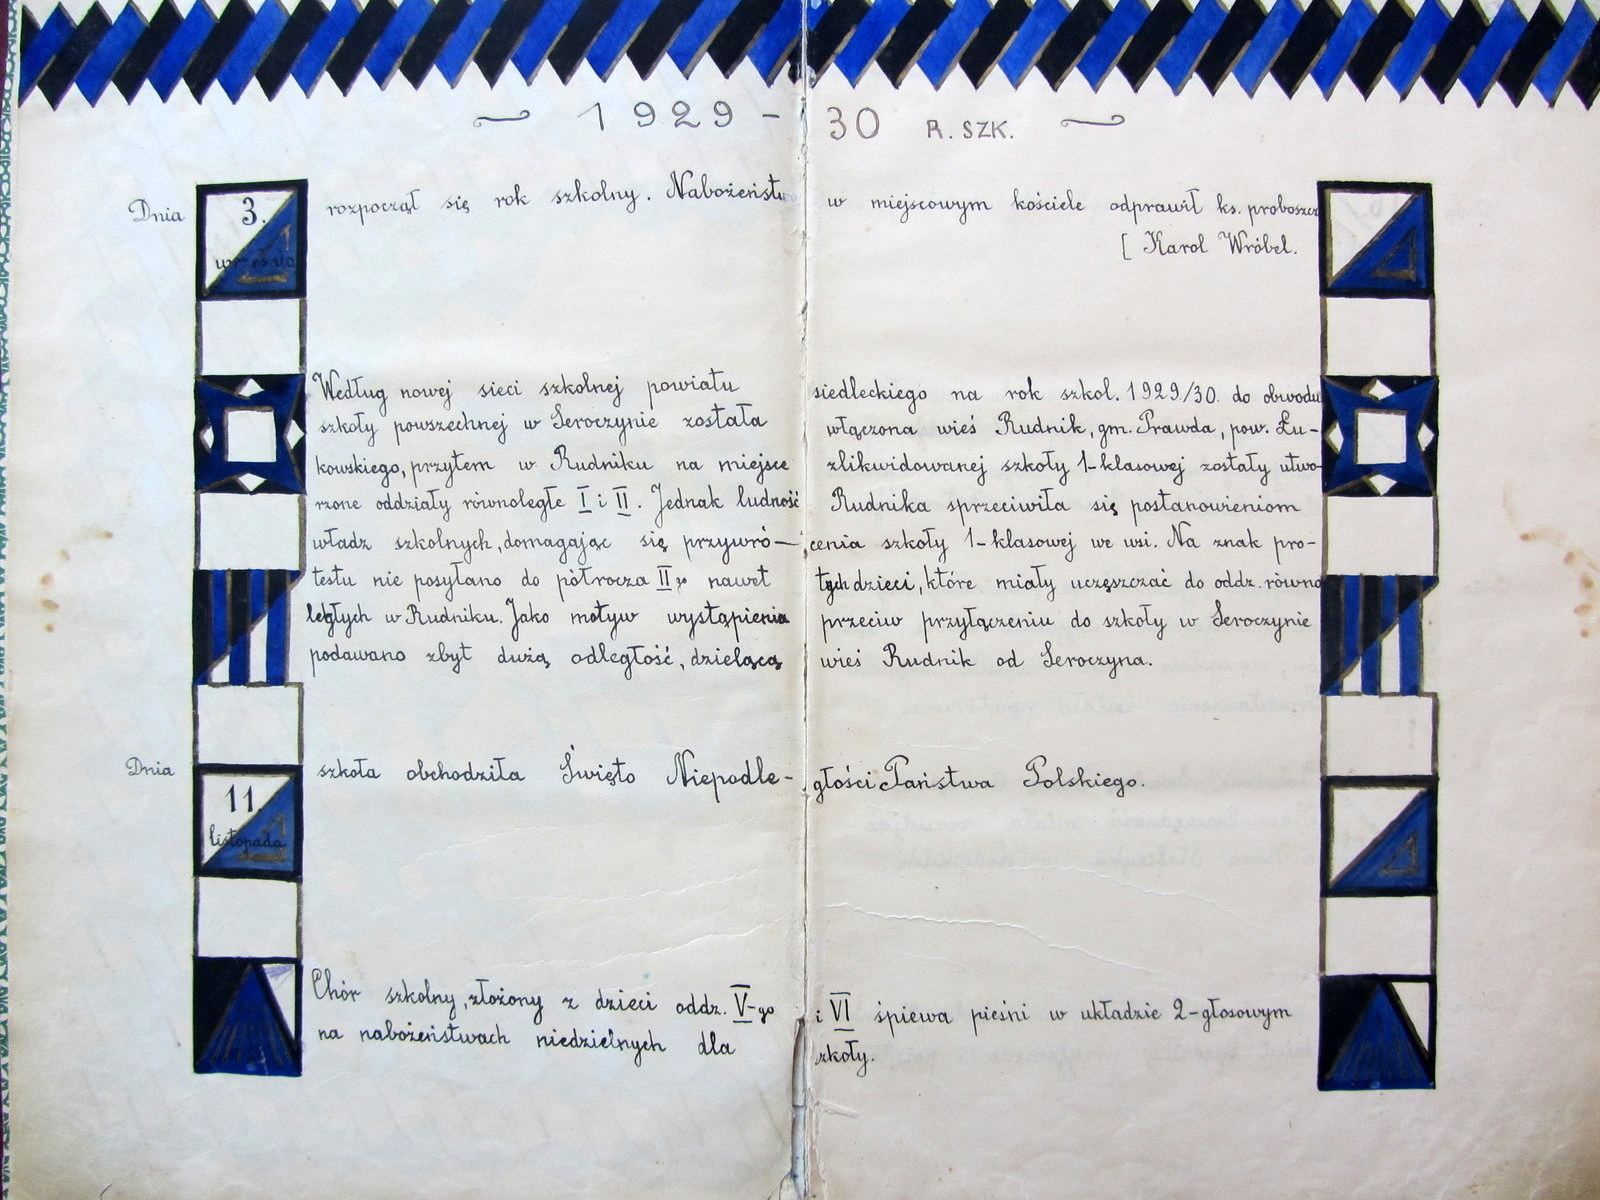 1929-30 R. SZK.
Dnia 3. września rozpoczął się rok szkolny. Nabożeństwo w miejscowym kościele odprawił ks. proboszcz
[ Karol Wróbel.
Według nowej sieci szkolnej powiatu siedleckiego na rok szkol. 1929/30. do obwodu
szkoły powszechnej w Seroczynie została włączona wieś Rudnik, gm. Prawda, pow. Łu-
kowskiego, przytem w Rudniku na miejsce zlikwidowanej szkoły 1-klasowej zostały utwo-
rzone oddziały równoległe I i II. Jednak ludność Rudnika sprzeciwiła się postanowieniom
władz szkolnych, domagając się przywró-cenia szkoły 1-klasowej we wsi. Na znak pro-
testu nie posyłano do półrocza II-go nawet tych dzieci, które miały uczęszczać do oddz. równo
ległych w Rudniku. Jako motyw wystąpienia przeciw przyłączeniu do szkoły w Seroczynie
podawano zbyt dużą odległość, dzielącą wieś Rudnik od Seroczyna.
Dnia 11. listopada szkoła obchodziła Święto Niepodle-głości Państwa Polskiego.
Chór szkolny, złożony z dzieci oddz. V-go i VI śpiewa pieśni w układzie 2-głosowym
na nabożeństwach niedzielnych dla szkoły.